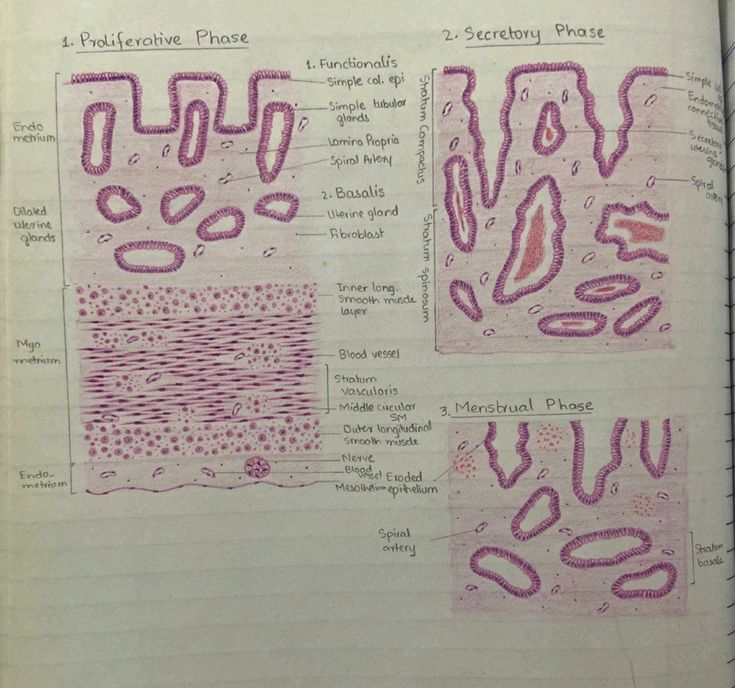 1. Proliferative Phase
1. Functionalis
Simple col. epi
Simple tubular
glands
Lamina Propria
Spiral Artery
2. Basalis
Uterine gland
Fibroblast
Inner long.
Smooth muscle
layer
Blood vessel
Stratum
vascularis
Middle circular
SM
Outer longitudinal
Smooth muscle
Nerve
Blood
vessel
Mesothelium
Endo
metrium
Dilated
uterine
glands
Myo
metrium
Endo-
metrium
2. Secretory Phase
Stratum Compactus
Stratum spinosum
Simple col.
Endomet
connective
tissue
Secretory
uterine gland
Spiral
artery
3. Menstrual Phase
Eroded
epithelium
Spiral
artery
Stratum
basale